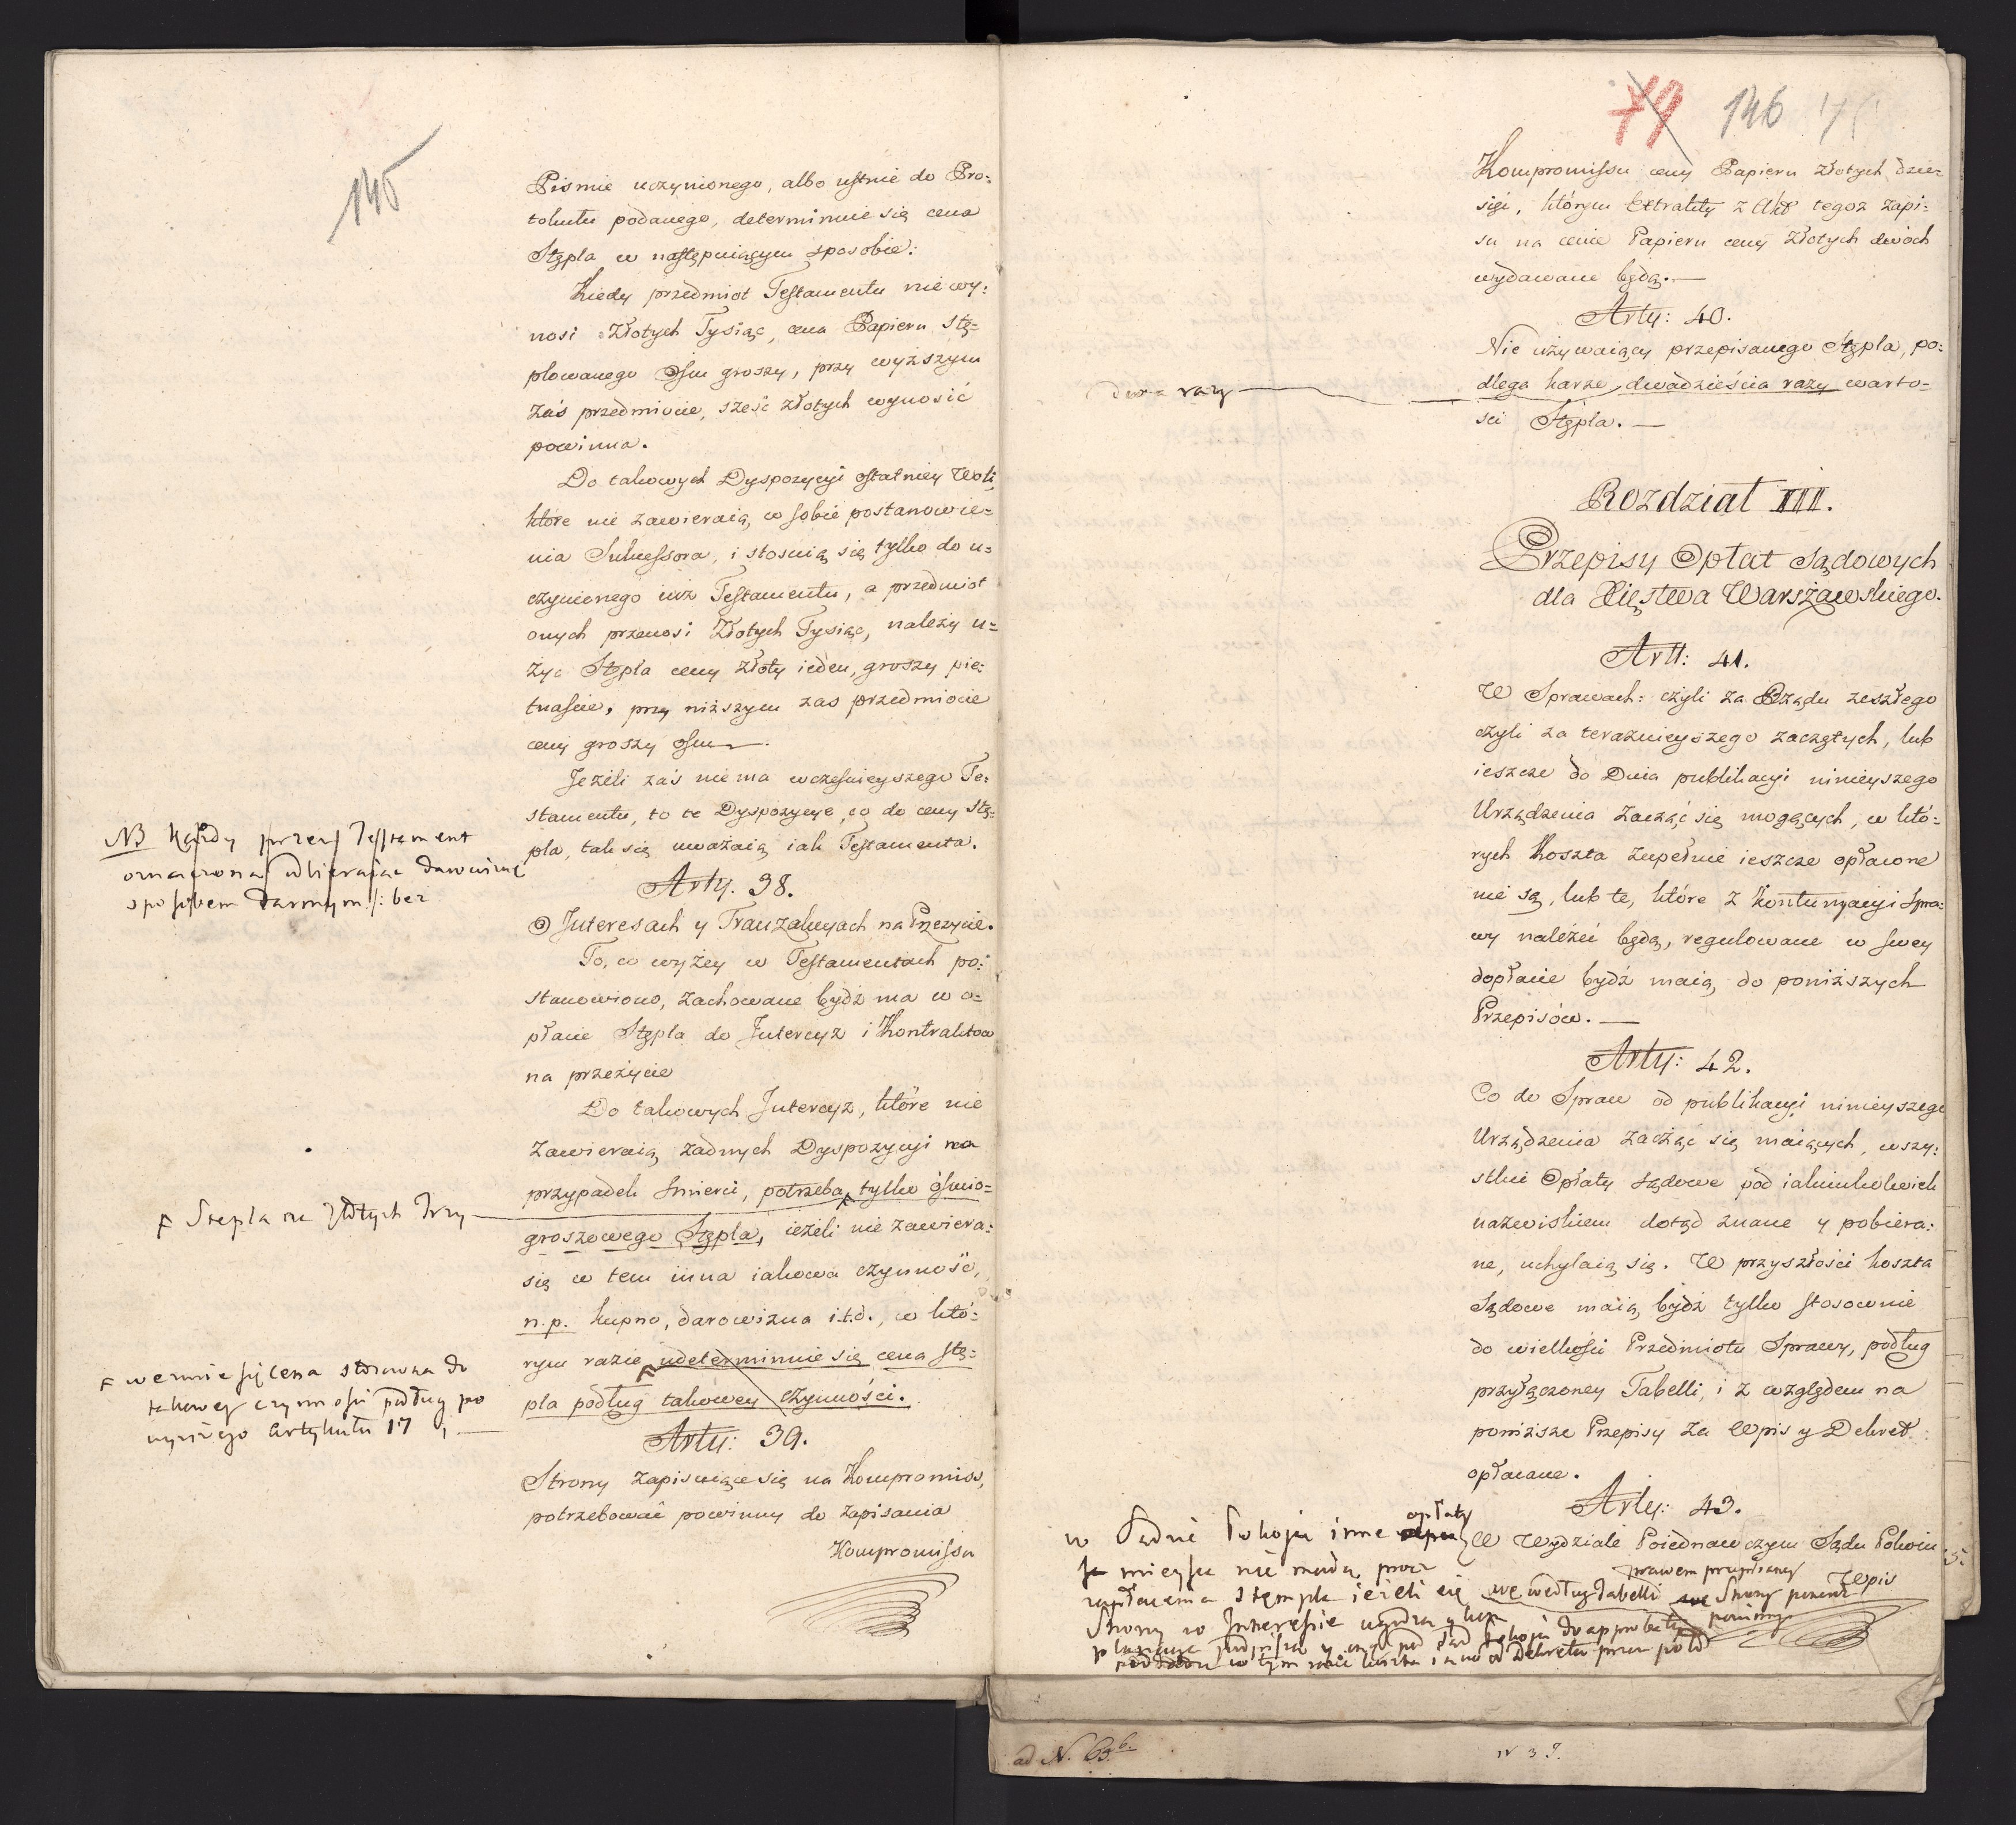 145
Pismie uczynionego, albo ustnie do Pro=
tokułu podanego, determinuie się cena
Stępla w następuiącym sposobie:
Kiedy przedmiot Testamentu nie wy=
nosi Złotych Tysiąc, cena Papieru Stę=
plowanego Ośm groszy, przy wyższym
zaś przedmiocie, sześć złotych wynosić
powinna.
Do takowych Dyspozycyi ostatniey Woli,
które nie zawieraią w sobie postanowie=
nia Sukcessora, i stosuią się tylko do u=
czynionego iuż Testamentu, a przedmiot
onych przenosi Złotych Tysiąc, należy u=
życ Stępla ceny złoty ieden, groszy pię=
tnaście, przy niższym zas przedmiocie
ceny groszy ośm.
Jeżeli zaś nie ma wcześnieyszego Te=
stamentu, to te Dyspozycye, co do ceny Stę=
pla, tak się uważaią iak Testamenta.
NB każdy przez Testament
sposobem darmym /: bez
Arty. 38.
O Interesach y Tranzakcyach na Przeżycie.
To, co wyżey w Testamentach po=
stanowiono, zachowane bydź ma w o=
płacie Stępla do Intercyz i Kontraktow
na przeżycie
Do takowych Intercyz, które nie
zawieraią żadnych Dyspozycyi na
przypadek śmierci, potrzeba tylko ośmio=
groszowego Stępla, ieżeli nie zawiera
się w tem inna iakowa czynność,
n.p. kupno, darowizna i.t.d., w któ=
rym razie udeterminuie się cena Stę=
pla podług takowey czynności.
F Stepla za Złotych trzy
F wezmie się cena stosowna do
takowey czynnosci podług po
wyższego Artykułu 17
Arty: 39.
Strony zapisuiące się na Kompromiss,
potrzebować powinny do zapisania
Kompromissu
79 146
Kompromissu ceny Papieru złotych dzie=
sięć, którym Extrakty z Akt tegoż zapi=
su na cenie Papieru ceny Złotych dwóch
wydawane będą.
Arty: 40.
Nie używaiący przepisanego Stępla, po=
dlega karze dwadzieścia razy warto=
sci Stępla.
dwa razy
Rozdział III.
Przepisy Opłat Sądowych
dla Xięstwa Warszawskiego.
Art: 41.
W Sprawach: czyli za Rządu zeszłego
czyli za teraznieyszego zaczętych, lub
ieszcze do Dnia publikacyi ninieyszego
Urządzenia zacząć się mogących, w któ=
rych Koszta zupełnie ieszcze opłacone
nie są, lub te, które z Kontynuacyi Spra=
wy należeć będą, regulowane w swey
dopłacie bydź maią, do poniższych
Przepisów.
Arty: 42.
Co do Spraw od publikacyi ninieyszego
Urządzenia zacząć się maiących, wszy=
stkie Opłaty sądowe pod iakimkolwiek
nazwiskiem dotąd znane y pobiera=
ne, uchylaią się. W przyszłości koszta
Sądowe maią bydź tylko stosownie
do wielkości Przedmiotu Sprawy, podług
przyłączoney Tabelli, i z względem na
poniższe Przepisy za Wpis y Dekret
opłacane.
Arty: 43.
W Wydziale Poiednawczym Sądu Pokoiu
Wpis
w Sądzie Pokoju inne opłaty
miejsca nie maią procz
zapłacenia stempla ieżeli się
Strony w Interesie
według Tabelli
ad N. 63.b.
N 39.